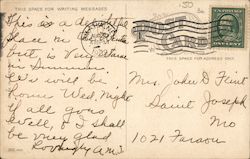 THIS SPACE FOR WRITING MESSAGES
This is a delightful
place in
but, is very warm
in Summer
We will be
home Wed. Night
if all goes
well, & I shall
be very glad
Lovingly A.M.F.
150
THIS SPACE FOR ADDRESS ONLY
Mrs. John D. Flint
Saint Joseph
Mo
1021 Faraon